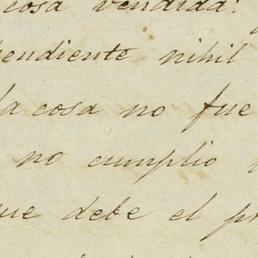 cosa vendida:
pendiente nihil
la cosa no fue
no cumplio
que debe el